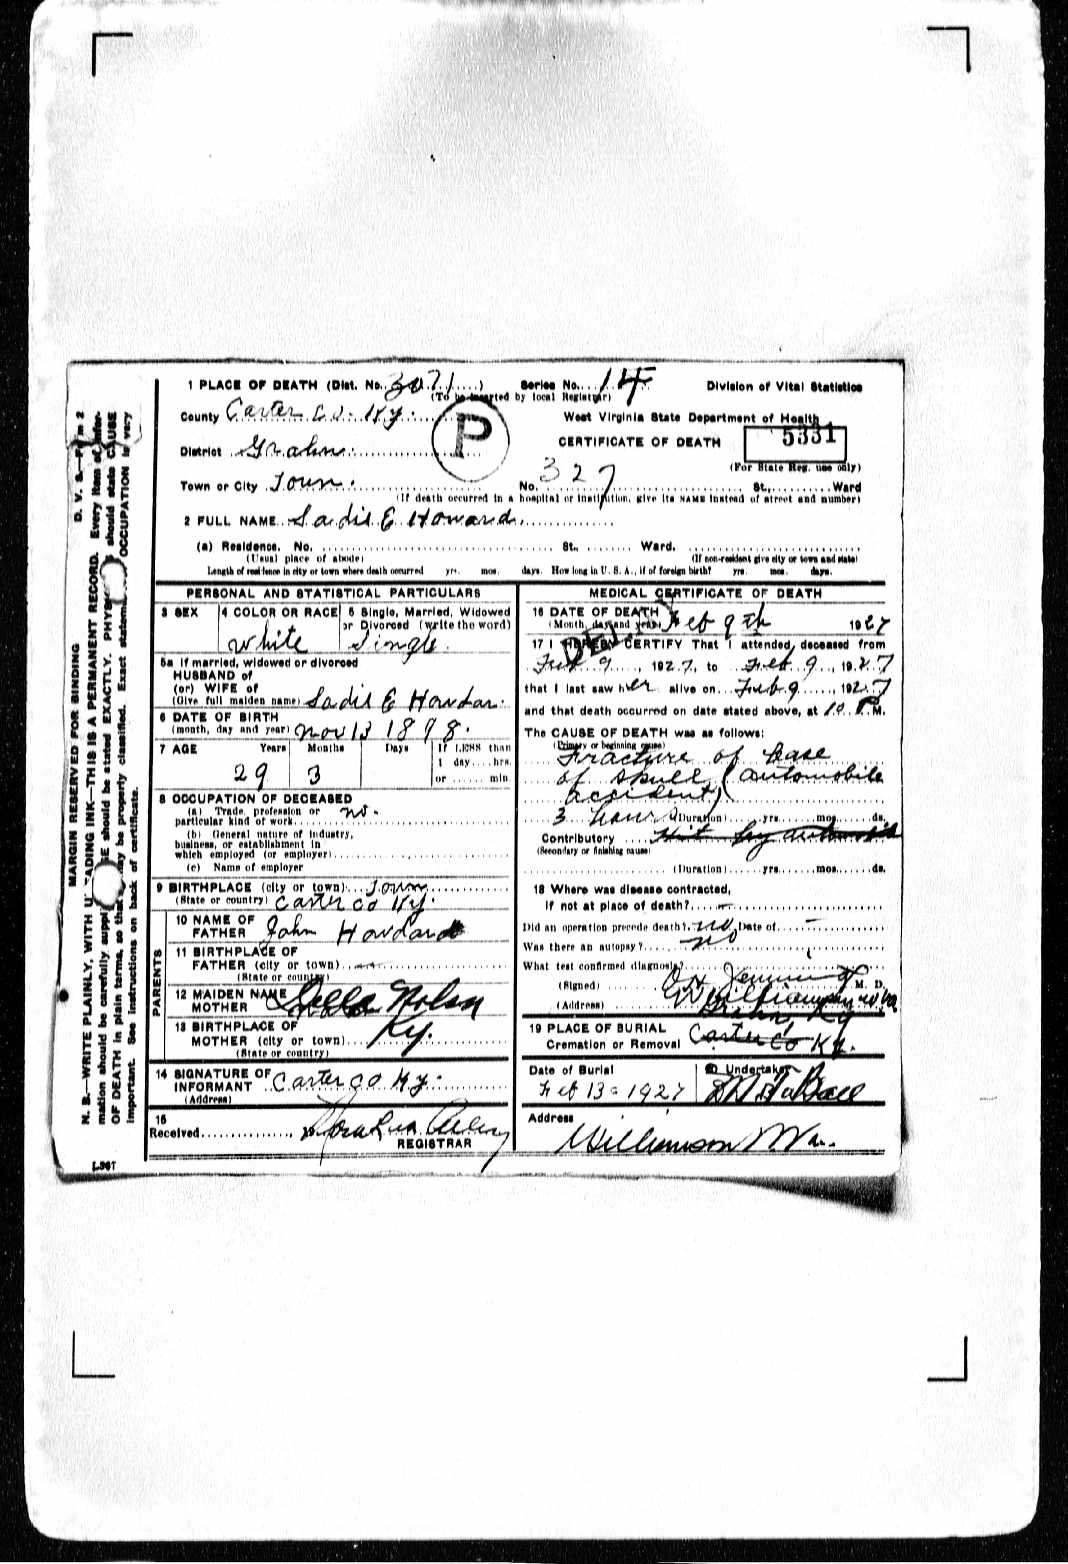 1 PLACE OF DEATH (Dist. No. 3071) Series No. 14 Division of Vital Statistics
(To be inserted by local Registrar)
County Carter Co. Ky. West Virginia State Department of Health
P
CERTIFICATE OF DEATH 5331
District Grahn. (For State Reg. use only)
Town or City Town. No. 327 St., Ward
(If death occurred in a hospital or institution, give its NAME instead of street and number)
2 FULL NAME Sadie E Howard.
(a) Residence. No. St., Ward.
(Usual place of abode) (If non-resident give city or town and state)
Length of residence in city or town where death occurred yrs. mos. days. How long in U. S. A., if of foreign birth? yrs. mos. days.
PERSONAL AND STATISTICAL PARTICULARS
3 SEX 4 COLOR OR RACE 5 Single, Married, Widowed
or Divorced (write the word)
White Single.
5a If married, widowed or divorced
HUSBAND of
(or) WIFE of
(Give full maiden name) Sadie E Howdar.
6 DATE OF BIRTH
(month, day and year) Nov 13 1898.
7 AGE Years Months Days If LESS than
1 day....hrs.
29 3 or ...... min.
8 OCCUPATION OF DECEASED
(a) Trade, profession or
particular kind of work no.
(b) General nature of industry,
business, or establishment in
which employed (or employer)
(c) Name of employer
9 BIRTHPLACE (city or town) Town
(State or country) Carter Co Ky.
PARENTS
10 NAME OF
FATHER John Howdard
11 BIRTHPLACE OF
FATHER (city or town)
(State or country)
12 MAIDEN NAME
MOTHER Nolen
13 BIRTHPLACE OF
MOTHER (city or town) Ky.
(State or country)
14 SIGNATURE OF
INFORMANT Carter Co Ky.
(Address)
15
Received
REGISTRAR
L.267
MEDICAL CERTIFICATE OF DEATH
16 DATE OF DEATH
(Month, day and year) Feb 9th 1927
17 I HEREBY CERTIFY That I attended deceased from
Feb 9, 1927, to Feb 9, 1927
that I last saw her alive on Feb 9, 1927
and that death occurred on date stated above, at 10 P.M.
The CAUSE OF DEATH was as follows:
(Primary or beginning cause)
Fracture of base
of skull (automobile
accident)
3 hours (Duration) yrs. mos. ds.
Contributory Hit by automobile
(Secondary or finishing cause)
(Duration) yrs. mos. ds.
18 Where was disease contracted,
if not at place of death? —
Did an operation precede death? no Date of —
Was there an autopsy? no
What test confirmed diagnosis?
(Signed) M. D.
(Address) Williamson W Va
Grahn, Ky
19 PLACE OF BURIAL
Cremation or Removal Carter Co Ky.
Date of Burial 20 Undertaker
Feb 13 1927
Address
Williamson W Va.
MARGIN RESERVED FOR BINDING D. V. S.—Form 2
N. B.—WRITE PLAINLY, WITH UNFADING INK—THIS IS A PERMANENT RECORD. Every item of infor-
mation should be carefully supplied. AGE should be stated EXACTLY. PHYSICIANS should state CAUSE
OF DEATH in plain terms, so that it may be properly classified. Exact statement of OCCUPATION is very
important. See instructions on back of certificate.